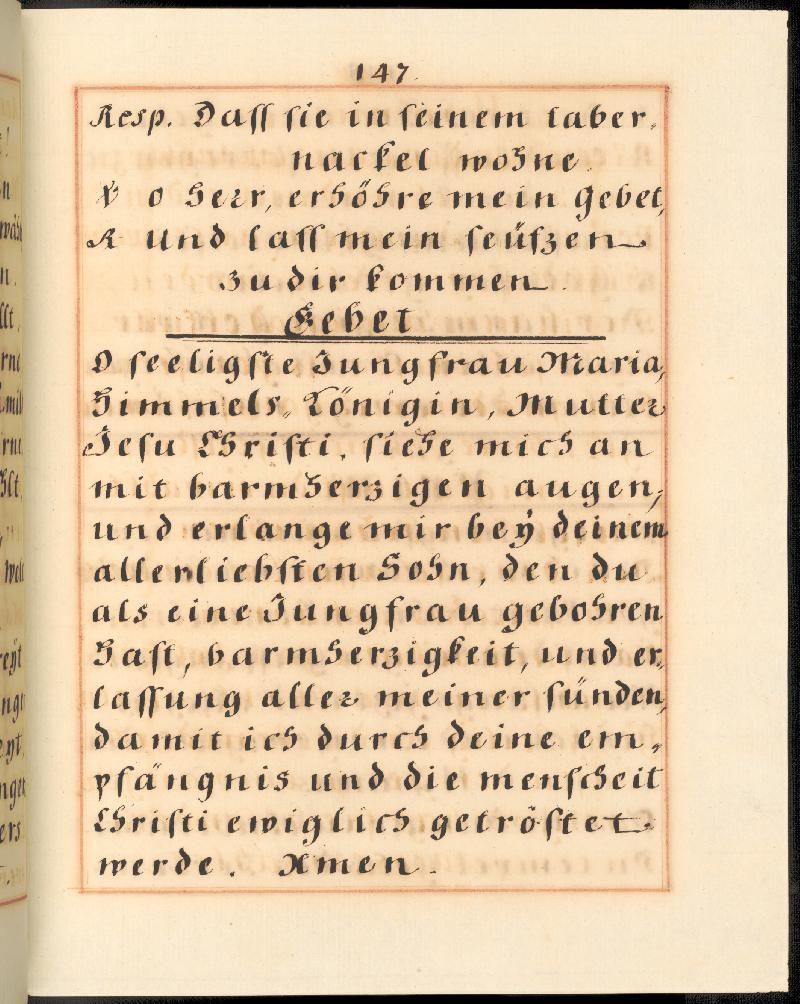 147.
Resp. Daſſ ſie in ſeinem taber⸗
nackel wohne.
V o herr, erhöhre mein gebet,
R und laſſ mein ſeüfzen
zu dir kommen.
Gebet
O ſeeligſte Jungfrau Maria,
Himmels⸗Königin, Mutter
Jeſu Chriſti, ſiehe mich an
mit barmherzigen augen,
und erlange mir beÿ deinem
allerliebſten Sohn, den du
als eine Jungfrau gebohren
haſt, barmherzigkeit, und er⸗
laſſung aller meiner ſünden,
damit ich durch deine em⸗
pfängnis und die menſcheit
Chriſti ewiglich getröſtet
werde. Amen.